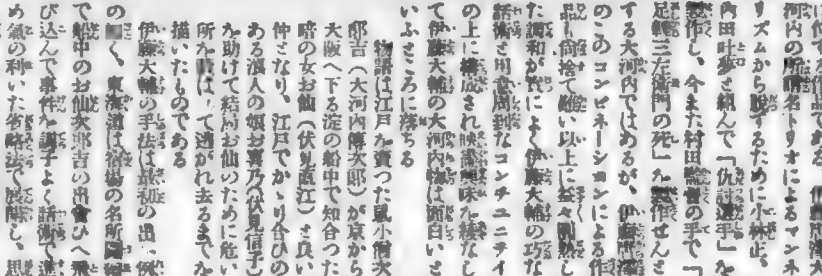 に位する作品である
河内の所謂名トリオによるマンネ
リズムから脱するために小林正、
内田吐夢と組んで「仇討選手」を
製作し、今また村田監督の手で「
足軽三左衛門の死」を製作せんと
する大河内ではあるが、伊藤
のこのコンビネーションによる作
品も尚捨て難い以上に益々円熟し
た調和が宜によく伊藤大輔の巧な
話術と用意周到なコンテユニテイ
の上に構成され映画興味を横なし
て伊藤大輔の大河内物は面白いと
いふところに落ちる
物語は江戸を売つた鼠小僧次
郎吉(大河内傳次郎)が京から
大阪へ下る淀の船中で知合つた
暗の女お仙(伏見直江)と良い
仲となり、江戸でかゝり合ひの
ある浪人の娘お喜乃(伏見信子)
を助けて結局お仙のために危い
所を して遁がれ去るまでを
描いたものである
伊藤大輔の手法は最初の出 例
の く、東海道は宿場の名所
で船中のお仙次郎吉の出會ひへ飛
び込んで事件を調子よく話術で進
め気の利いた省略法で展開し、思